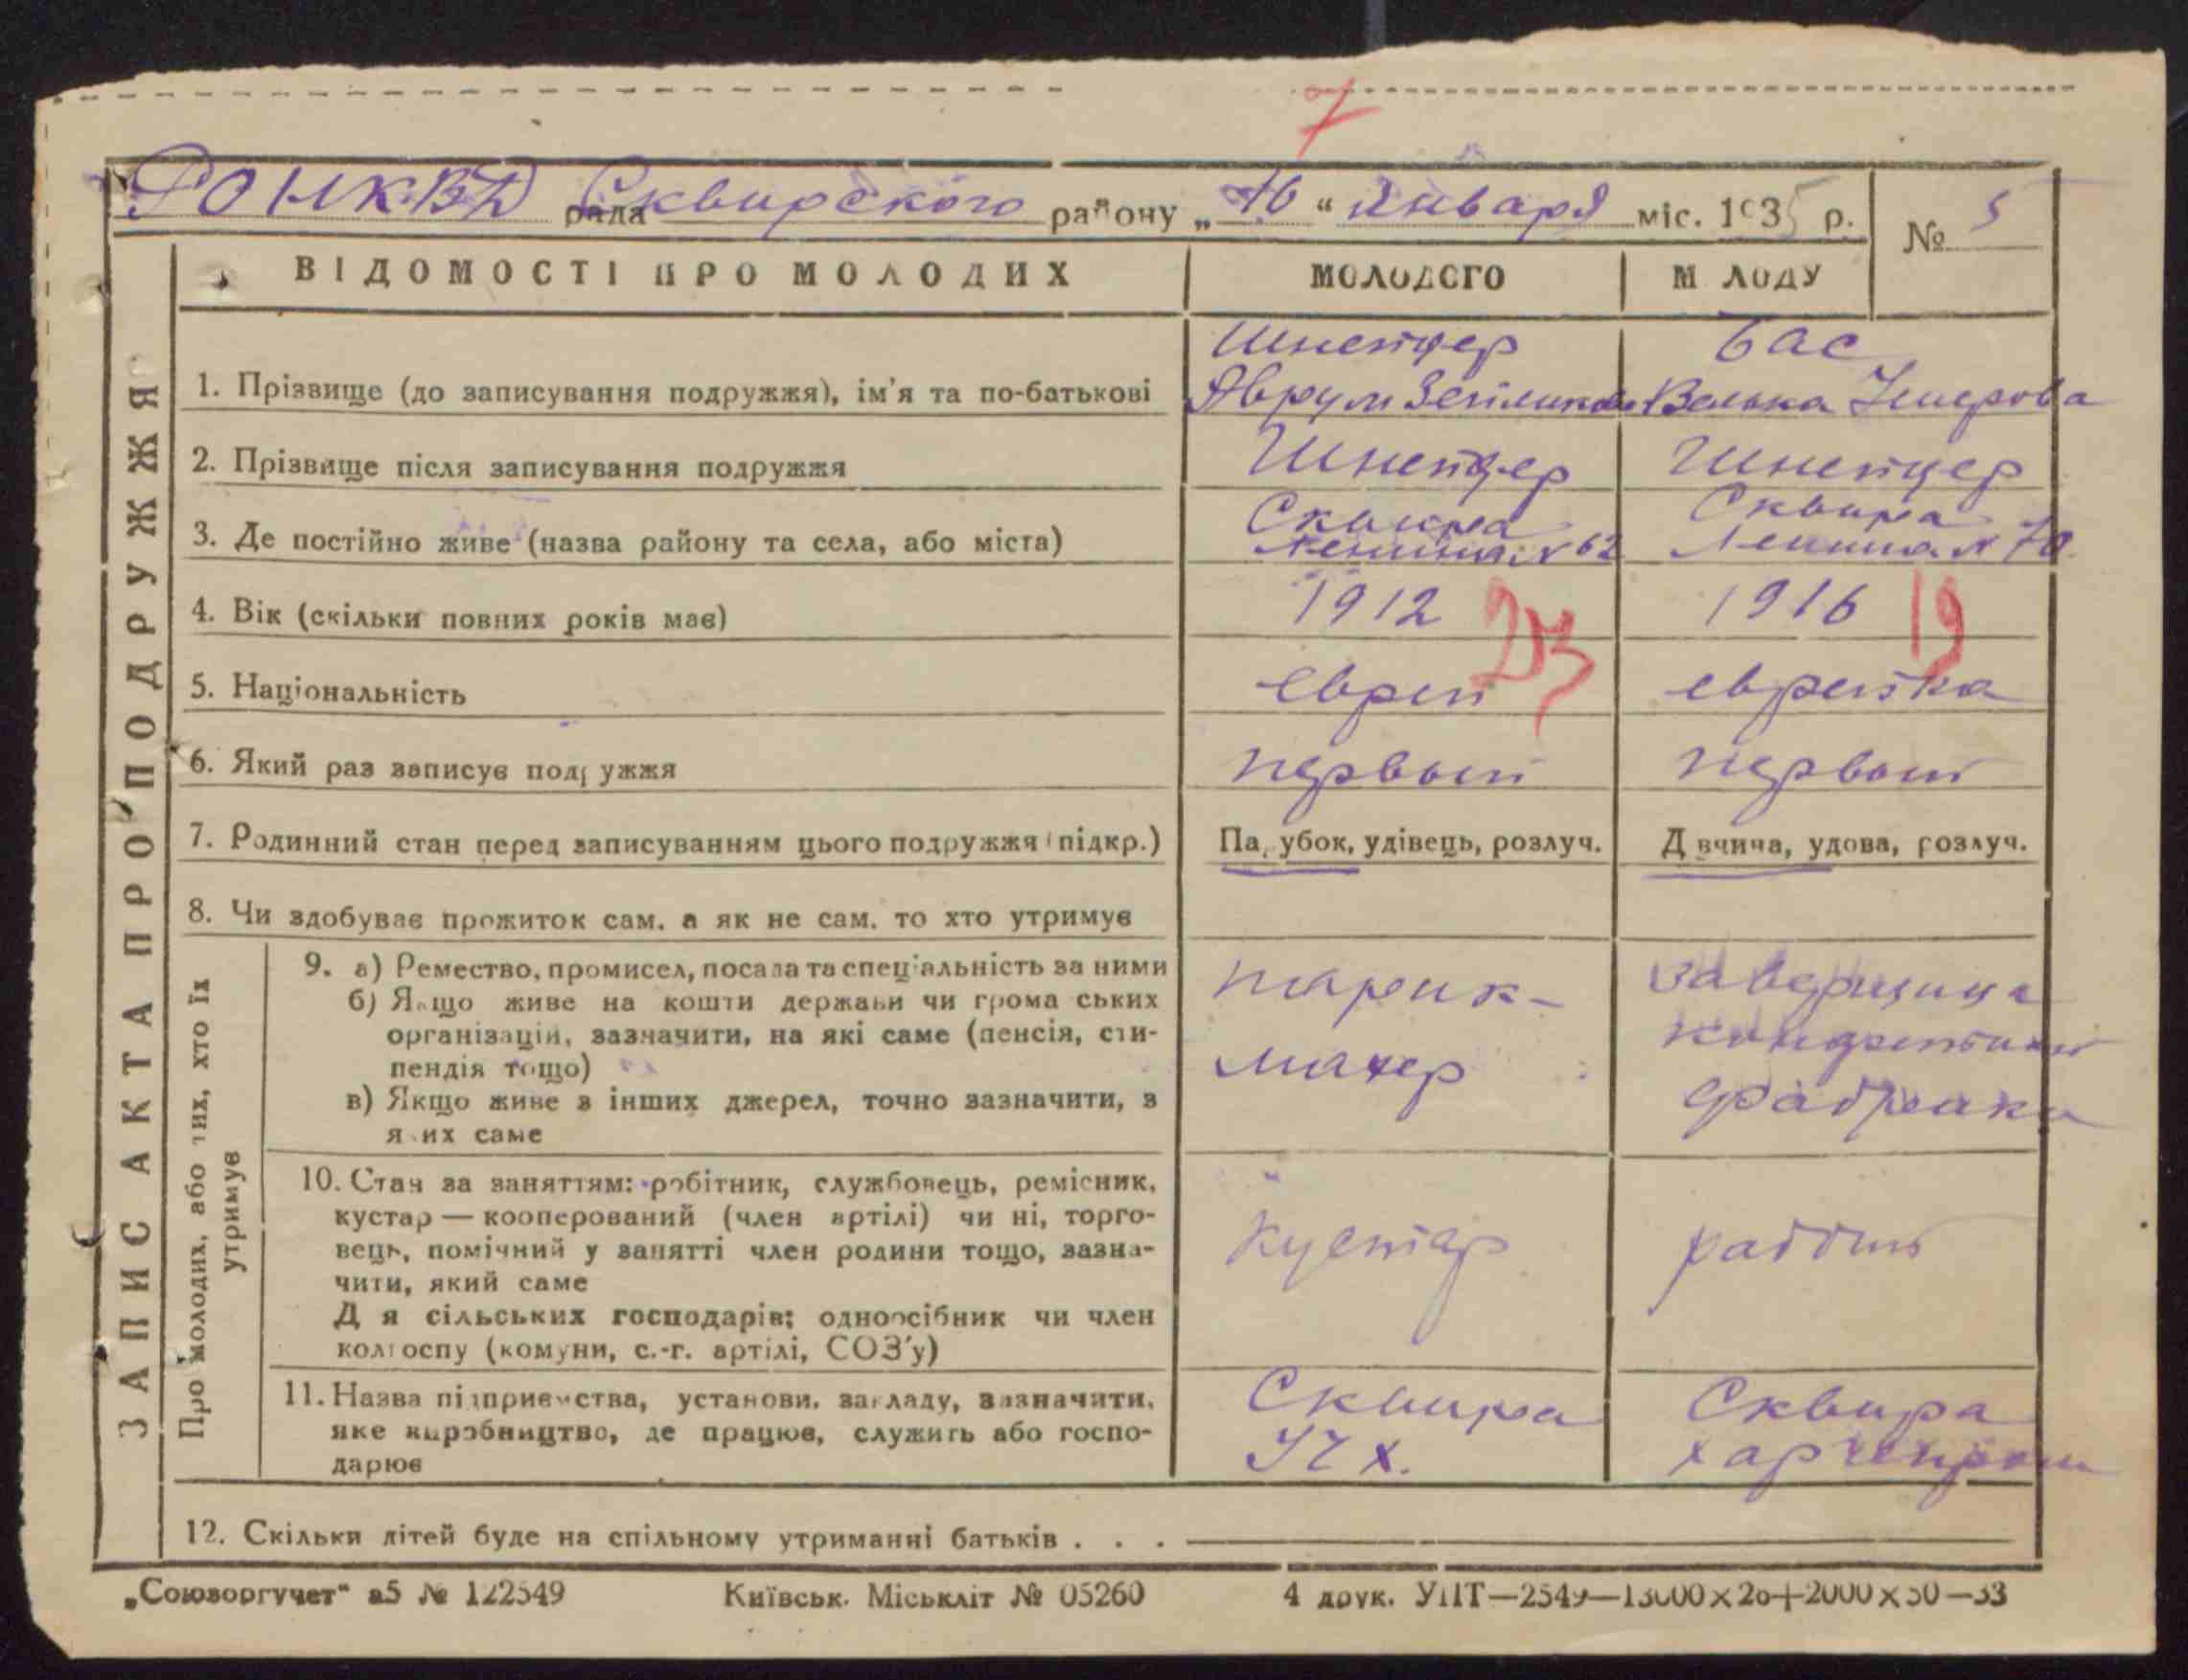 7
РОНКВД рада Сквирского району „16“ Января міс. 1935 р. № 5
ЗАПИС АКТА ПРО ПОДРУЖЖЯ
ВІДОМОСТІ ПРО МОЛОДИХ МОЛОДОГО М ЛОДУ
Шнейдер Бас
1. Прізвище (до записування подружжя), ім'я та по-батькові Аврум Велька
2. Прізвище після записування подружжя Шнейдер Шнейдер
Сквира Сквира
3. Де постійно живе (назва району та села, або міста) Ленина № 62 Ленина № 70
4. Вік (скільки повних років має) 1912 23 1916 19
5. Національність еврей еврейка
6. Який раз записує под ужжя первый первый
7. Родинний стан перед записуванням цього подружжя (підкр.) Па убок, удівець, розлуч. Д вчина, удова, розлуч.
8. Чи здобуває прожиток сам, а як не сам, то хто утримує
Про молодих, або тих, хто їх утримує
9. а) Ремество, промисел, посада та спеціальність за ними
б) Якщо живе на кошти держави чи грома ських
організацій, зазначити, на які саме (пенсія, сти-
пендія тощо)
в) Якщо живе з інших джерел, точно зазначити, з
я их саме
парик-
махер
конфетной
фабрики
10. Стан за заняттям: робітник, службовець, ремісник,
кустар — кооперований (член артілі) чи ні, торго-
вець, помічний у занятті член родини тощо, зазна-
чити, який саме
Д я сільських господарів: одноосібник чи член
колгоспу (комуни, с.-г. артілі, СОЗ'у)
кустар
11. Назва підприємства, установи, закладу, зазначити,
яке виробництво, де працює, служить або госпо-
дарює
Сквира
УТХ.
Сквира
12. Скільки дітей буде на спільному утриманні батьків . . .
„Союзоргучет“ а5 № 122549 Київськ. Міськліт № 05260 4 друк. УПТ—2549—13000×20+2000×50—33